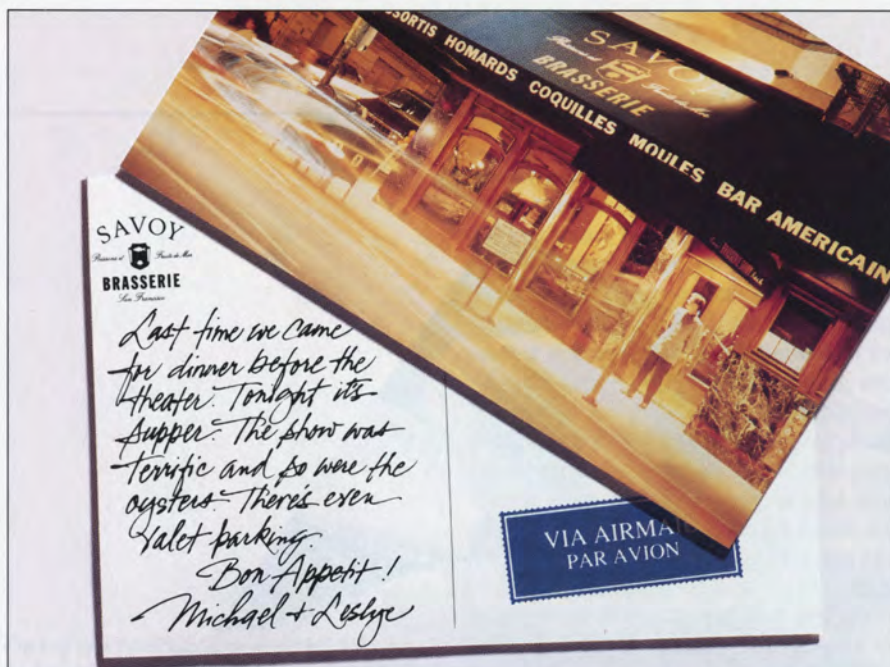 SSORTIS HOMARDS COQUILLES MOULES BAR AMERICAIN
SAVOY
Poissons et Fruits de Mer
BRASSERIE
SAVOY
Poissons et Fruits de Mer
BRASSERIE
San Francisco
Last time we came
for dinner before the
theater. Tonight it's
supper. The show was
terrific and so were the
oysters. There's even
valet parking.
Bon Appetit!
- Michael + Leslye
VIA AIRMA
PAR AVION